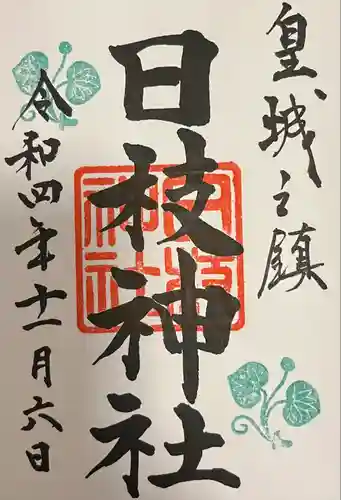 皇城之鎮
日枝神社
令和四年十一月六日
日枝神社